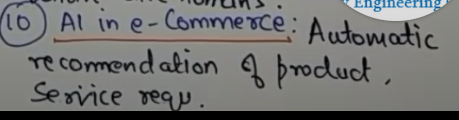 Engineering
(10) AI in e-Commerce: Automatic
recommendation of product,
Service requ.